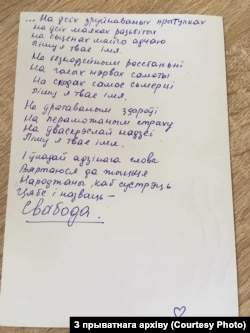 ... На ўсіх зруйнаваных прытулках
На ўсіх маяках разбітых
На сценах майго адчаю
Пішу я тваё імя.
На безнадзейным расстаньні
На голых нэрвах самоты
На сходах самое сьмерці
Пішу я тваё імя.
На ўратаваным здароўі
На пераможаным страху
На ўваскрэслай надзеі
Пішу я тваё імя.
І ўладай адзінага слова
Вяртаюся да жыцьця
Народжаны, каб сустрэць
Цябе і назваць —
Свабода.
З прыватнага архіву (Courtesy Photo)